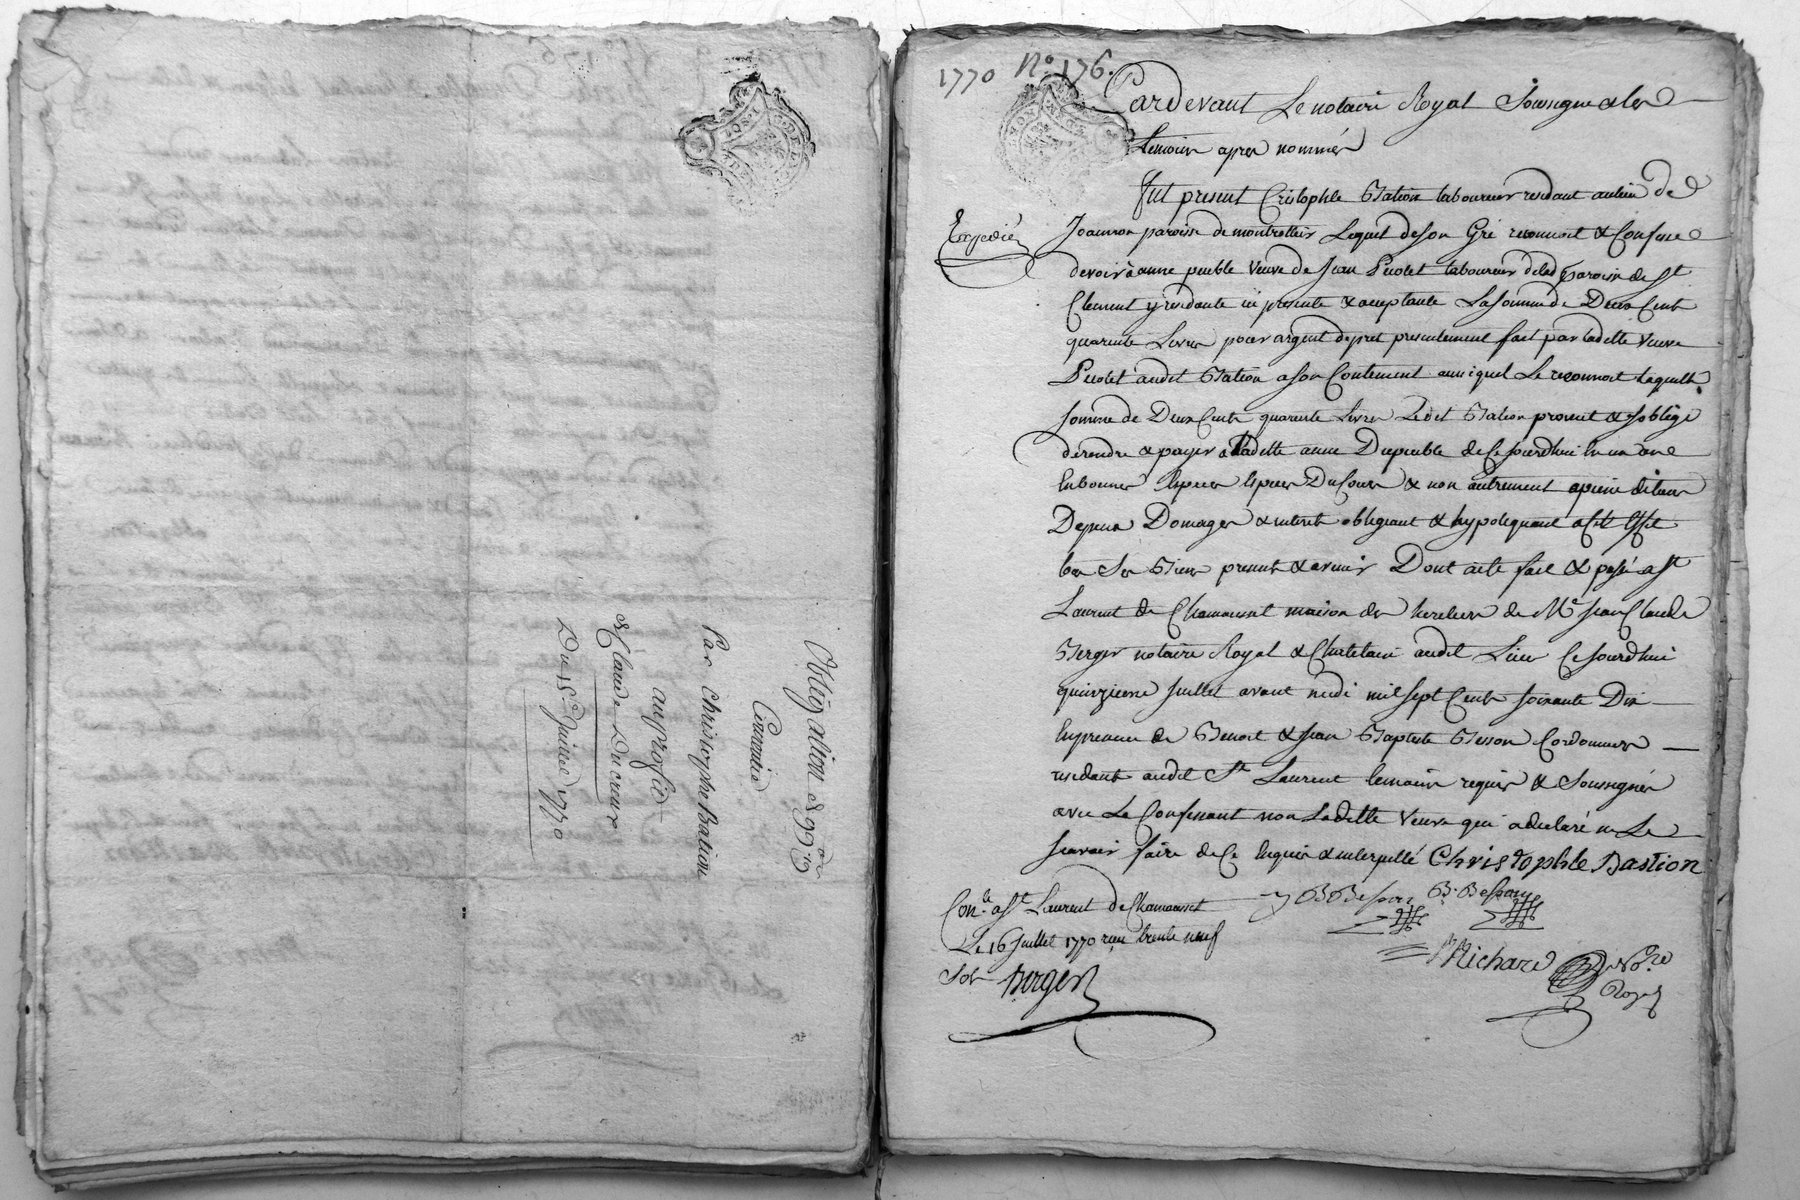 Obligation de 99₶ 19s
Connotée
Par Christophe Bation
au profit
de Claude Ducreux
Du 15e Juillet 1770
1770 No. 176.
Pardevant Le notaire Royal Soussigné & les
temoins apres nommés
fut present Cristophle Bation laboureur residant au lieu de
Expedié
Joannon paroisse de montrottier Lequel deson Gré reconnoit & Confesse
devoir à anne peuble veuve de Jean Perotet laboureur deladte paroisse de St
Clement y residante ici presente & acceptante La somme de Deux Cents
quarente Livres pour argent depret presentement fait par ladette veuve
Perotet audit Bation a son Contement ainsi quil Le reconnoit laquelle
somme de Deux Cents quarente livres Ledit Bation promet & soblige
de rendre & payer a Ladette anne Dupeuble de Ce jourdhui En un an
En bonnes Especes Especes Du Cours & non autrement a peine de tous
Depens Domages & interets obligeant & hypotequant a Cet Effet
tous Ses Biens presents & avenir Dont acte fait & passé a St
Laurent de Chamousset maison des heretiers de Me Jean Claude
Berger notaire Royal & Chatelain audit Lieu Ce jourdhui
quinzieme Juillet avant midi mil sept Cents soixante Dix
En presence de Benoit & Jean Baptiste Besson Cordonniers
residants audit St Laurent temoins requis & Soussignés
avec Le Confessant non Ladette Veuve qui a declaré ne Le
scavoir faire de Ce Enquise & interpellé Christophle Bastion
Con.le a St Laurent De Chamousset
J B Besson B. Besson
Le 16 Juillet 1770 reçu trente neuf
Sols Berger
Michard Nore
Royal